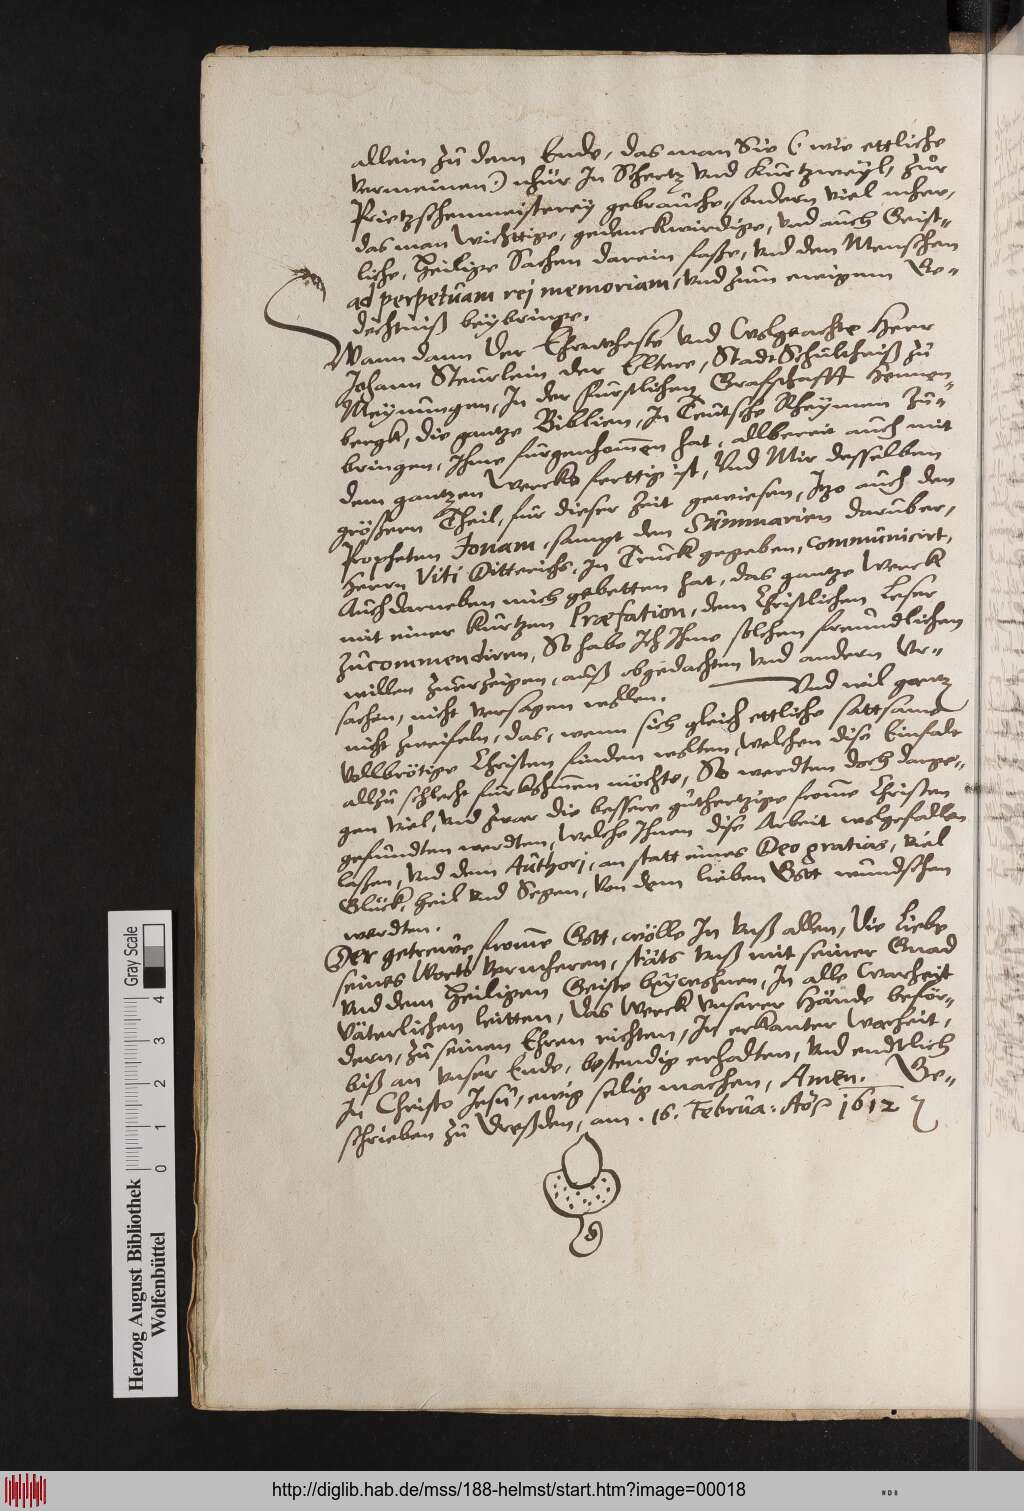 allein zu dem Ende, das man Sie (: wie ettliche
vermeinen:) nhur In Schertz vnd Kurtzweyl, zur
Prietzschenmeisterey gebrauche, sondern viel mher,
das man Wichttige, gedenckwirdige, vnd auch Geist-
liche, Heilige Sachen darein faße, vnd den Menschen
ad perpetuam rej memoriam, vnd zum ewigenn Ge-
dechtniß beybringe.
Wann dann Der Ehrnvheste vnd Wolgeachte Herr
Johann Steurlein der Eltere, Stadt Schultheiß zu
Meynungen, In der Fürstlichen Grafschafft Hennen-
bergk, die gantze Biblien, In Teutsche Rheymen zu-
bringen, Ihme fürgenhommen hat, allbereit auch mit
dem gantzen Wercke ferttig ist, Vnd Mir desselben
größern Theil, für dieser Zeit gewiesen, Itzo auch den
Propheten Jonam, sampt den Summarien darüber,
Herrn Viti Ditterichs, In Truck gegeben, communicirt,
Auch darneben mich gebetten hat, das gantze Werck
mit einer kurtzen Præfation, dem Christlichen Leser
zu commendiren, So habe Ich Ihme solchen freundlichen
willen zuerzeigen, auß obgedachten vnd andern Vr-
sachen, nicht versagen wollen. Vnd wil gantz
nicht zweifeln, das, wenn sich gleich ettliche sattsame
vollbrötige Christen finden wolten, welchen dise Einfalt
allzu schlecht fürkhommen möchte, So werdten doch darge-
gen viel, vnd zwar die bessere guthertzige fromme Christen
gefundten werdten, Welche Ihnen dise Arbeit wolgefallen
laßen, vnd dem Authorj, an statt eines Deo gratias, viel
Glück, Heil vnd Segen, von dem lieben Gott wundschen
werdten.
Der getrewe fromme Gott, wölle In vnß allen, Die Liebe
seines Worts vermheren, stäts vnß mit seiner Gnad
vnd dem Heiligen Geiste beywohnen, In alle Warheit
Väterlichen leitten, Das Werck vnserer Hände beför-
dern, zu seinen Ehren richten, In erkanter Warheit,
biß an vnser Ende, bestendig erhalten, vnd endtlich
In Christo Jesu, ewig selig machen, Amen. Ge-
schrieben zu Dreßden, am .16. Februa: Ao 1612
Herzog August Bibliothek
Wolfenbüttel
0 1 2 3 4
Gray Scale
http://diglib.hab.de/mss/188-helmst/start.htm?image=00018